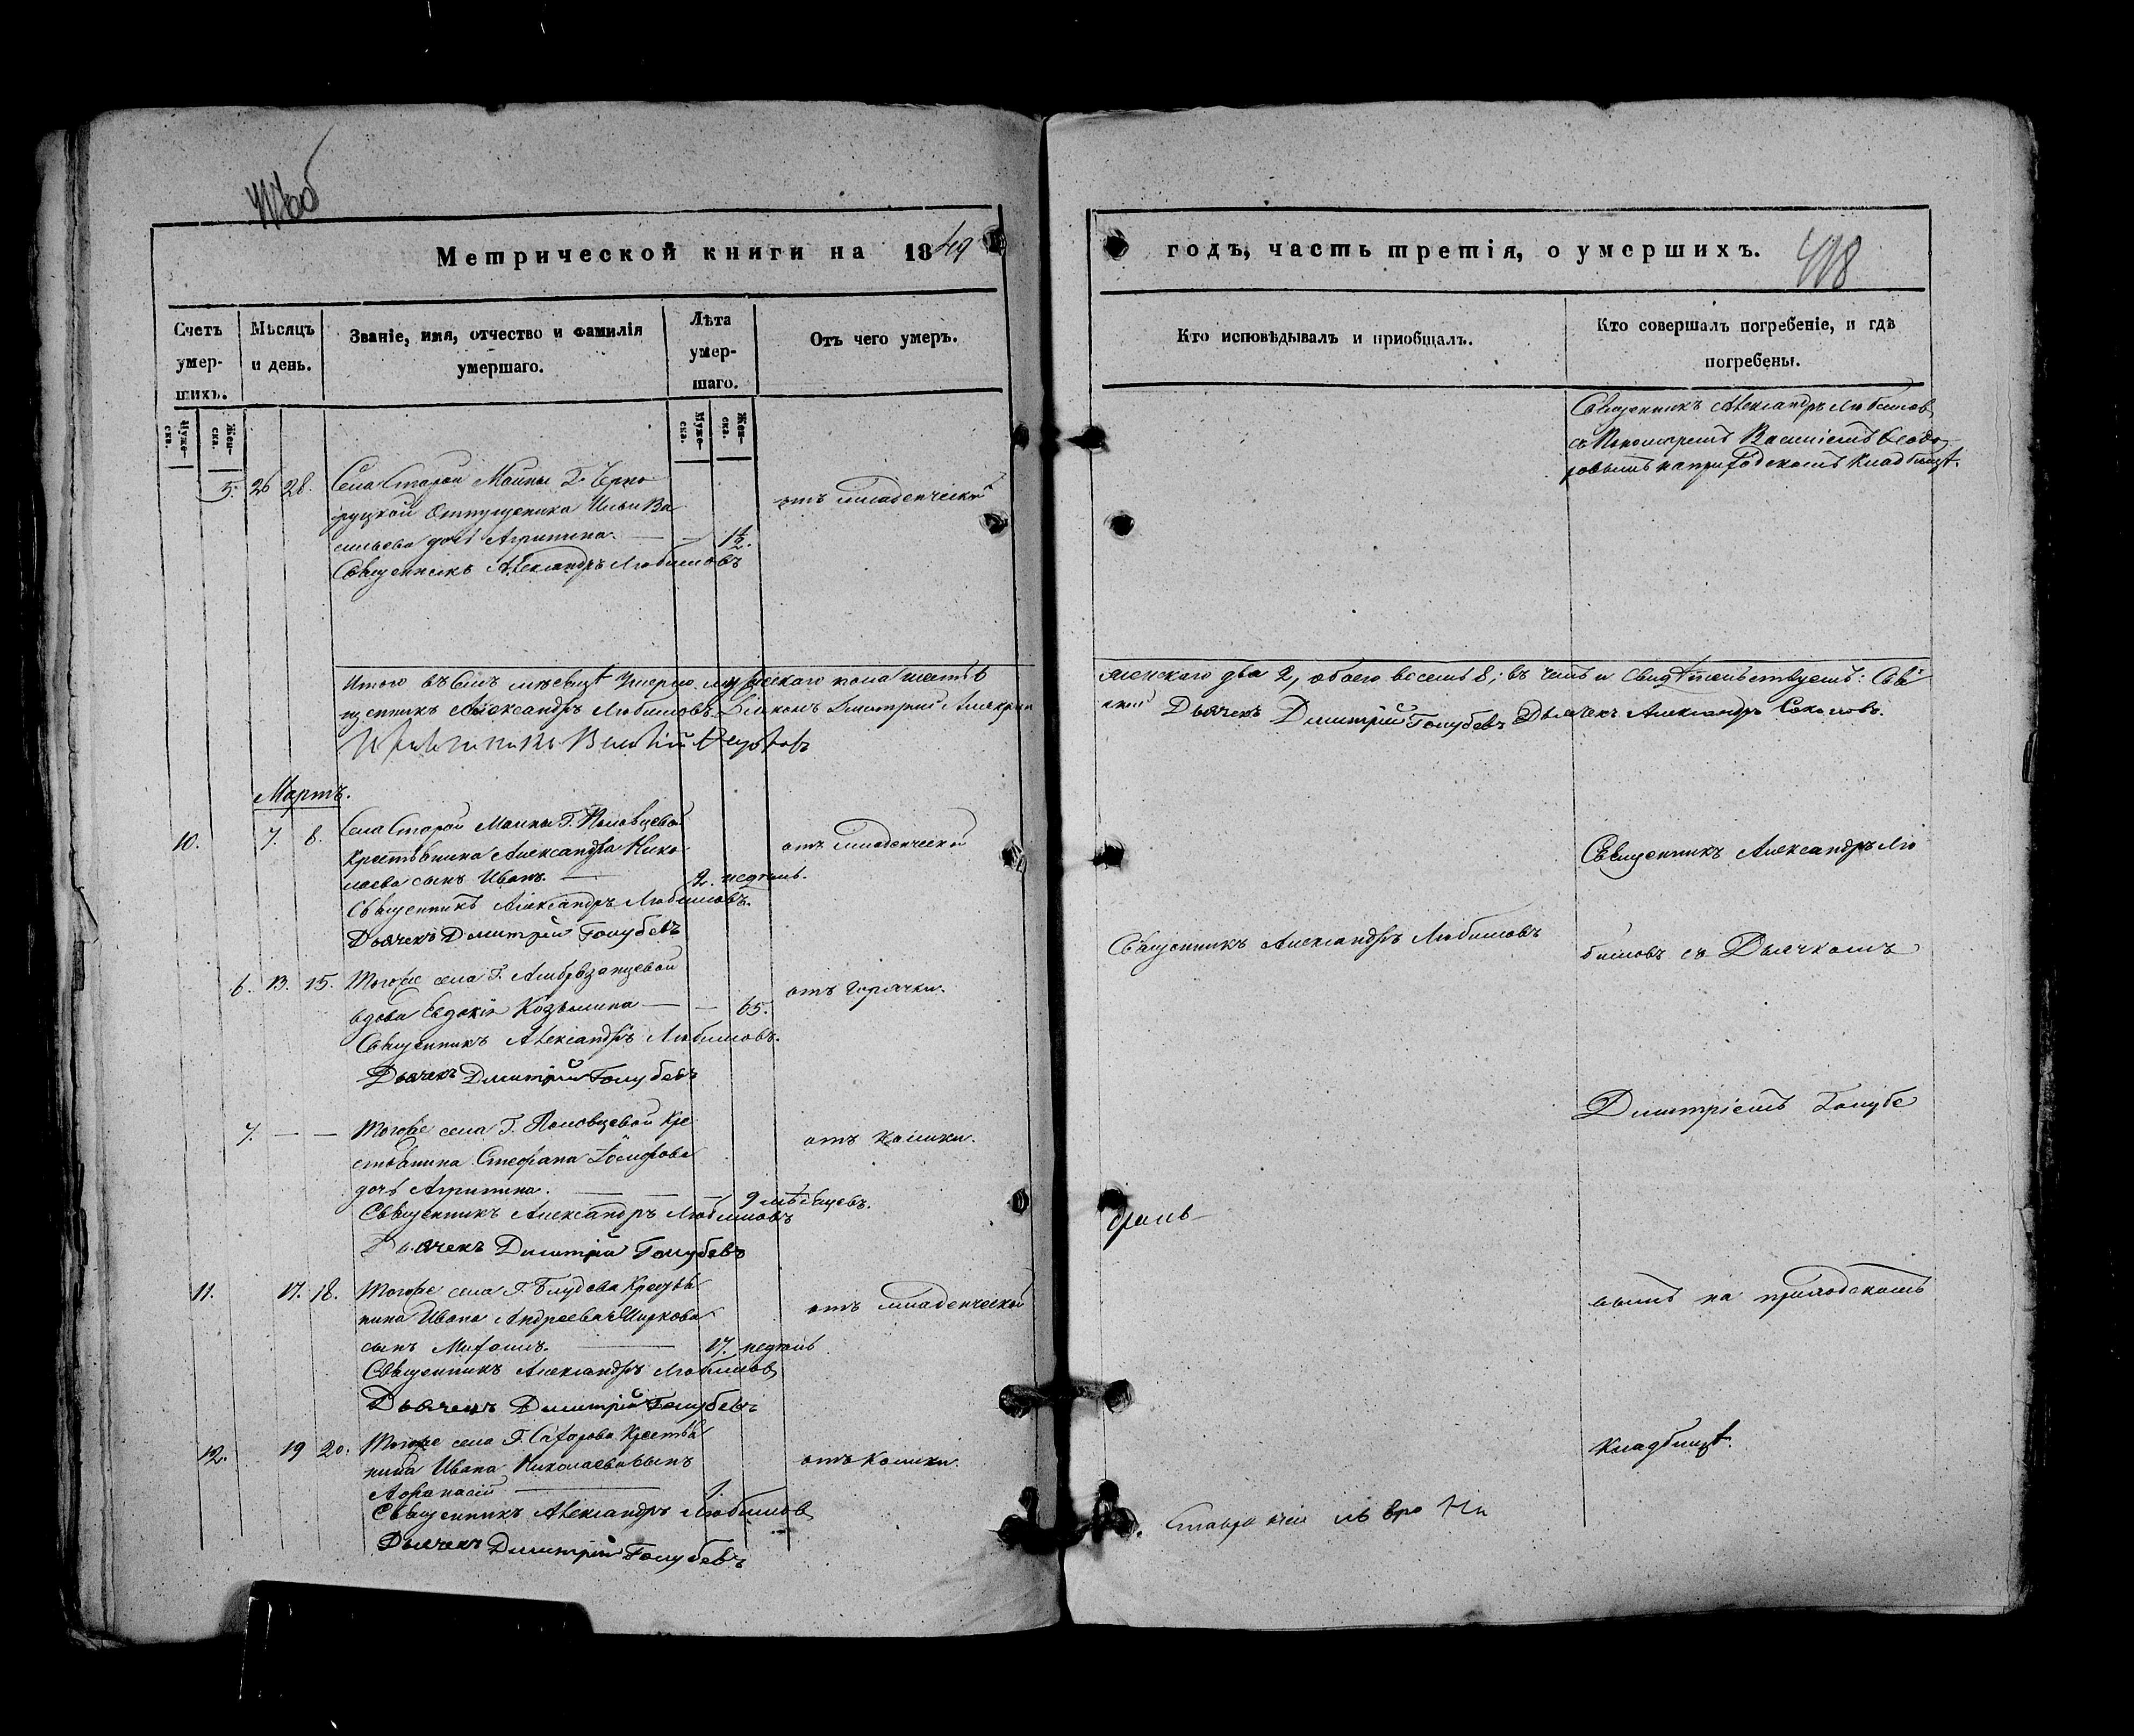 Метрической книги на 1849
Счетъ умер-шихъ.
Мѣсяцъ и день.
Званіе, имя, отчество и фамилія умершаго.
Лѣта умер-шаго.
Отъ чего умеръ.
Муже-ска.
Жен-ска.
Муже-ска.
Жен-ска.
5. 26 28. Села Старой Майны Г.
Отпущеника Ильи Ва
сильева дочь Агрипина. — — 1½.
отъ младенческой
Священникъ Александръ Любимовъ
Итого въ семъ мѣсяцѣ умерло мужескаго пола шесть 6
щенникъ Александръ Любимовъ Діаконъ Димитрій
Василій
Мартъ.
10. 7. 8. Села Старой Майны Г. Половцевой
Крестьянина Александра Нико
лаева сынъ Иванъ. — 2. недѣль.
отъ младенческой
Священникъ Александръ Любимовъ.
Дьячекъ Димитрій Голубевъ
6. 13. 15. Тогоже села Г.
вдова Евдокія Козьмина — — 65.
отъ горячки.
Священникъ Александръ Любимовъ.
Дьячекъ Димитрій Голубевъ
7. — — Тогоже села Г. Половцевой Кре
стьянина Стефана
дочь Агрипина. — — — 9 мѣсяцевъ.
отъ колики.
Священникъ Александръ Любимовъ
Дьячекъ Димитрій Голубевъ
11. 17. 18. Тогоже села Г. Блудова Крестья
нина Ивана Андреева
сынъ Михаилъ. — 17. недѣль
отъ младенческой
Священникъ Александръ Любимовъ
Дьячекъ Димитрій Голубевъ
12. 19 20. Тогоже села Г. Крестья
нина Ивана Николаева сынъ
Афанасій — 1.
отъ колики.
Священникъ Александръ Любимовъ
Дьячекъ Димитрій Голубевъ
годъ, часть третія, о умершихъ.
418
Кто исповѣдывалъ и пріобщалъ.
Кто совершалъ погребеніе, и гдѣ погребены.
Священникъ Александръ Любимовъ
съ Пономаремъ Василіемъ Ѳеодо
ровымъ на приходскомъ кладбищѣ.
женскаго два 2, обоего восемь 8; въ чемъ и свидѣтельствуемъ: Свя
Дьячекъ Димитрій Голубевъ Дьячекъ Александръ Соколовъ.
Священникъ Александръ Лю
Священникъ Александръ Любимовъ
бимовъ съ Дьячкомъ
Димитріемъ Голубе
вымъ на приходскомъ
кладбищѣ.